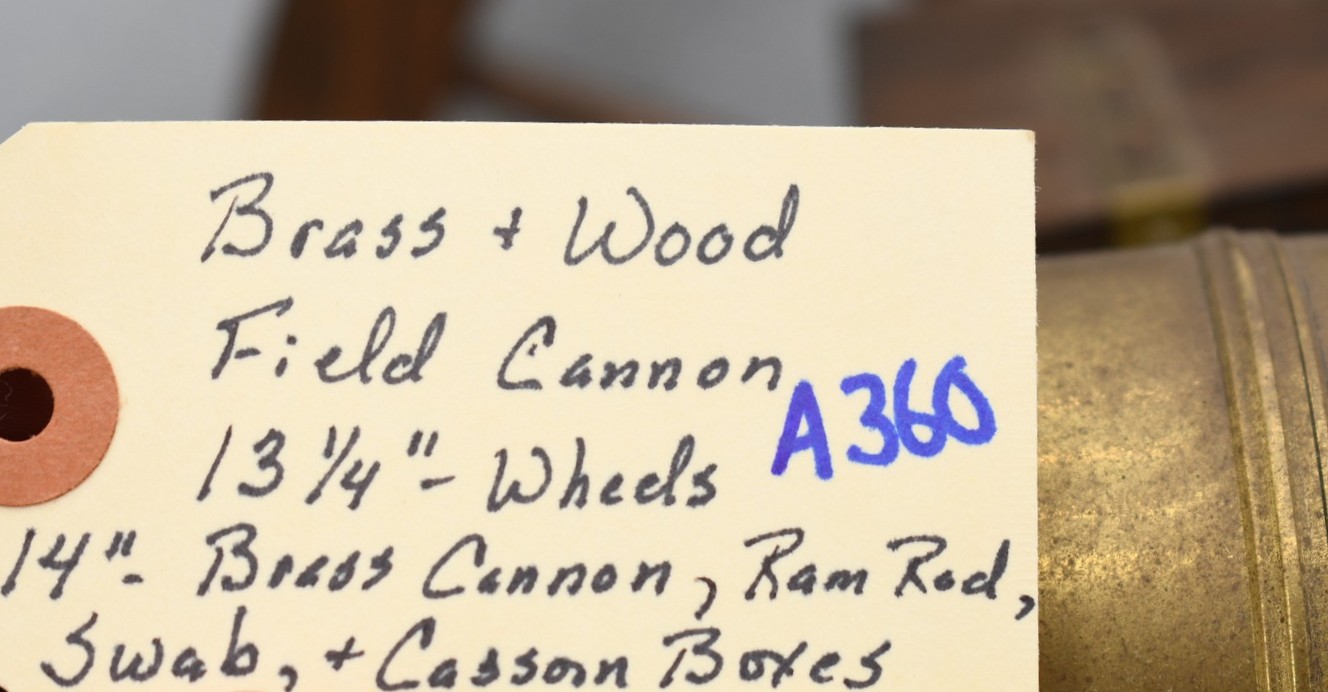 Brass + Wood
Field Cannon
A360
13 1/4"- Wheels
14"- Brass Cannon, Ram Rod,
Swab, + Cassom Boxes